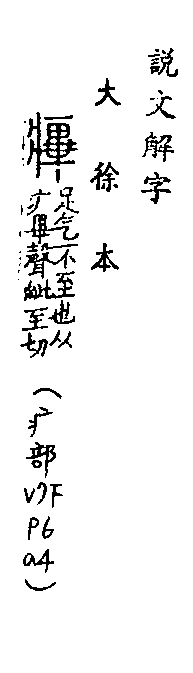 說文解字
大徐本
足气不至也从
疒畢聲毗至切
(疒部
V7F
P6
a4)